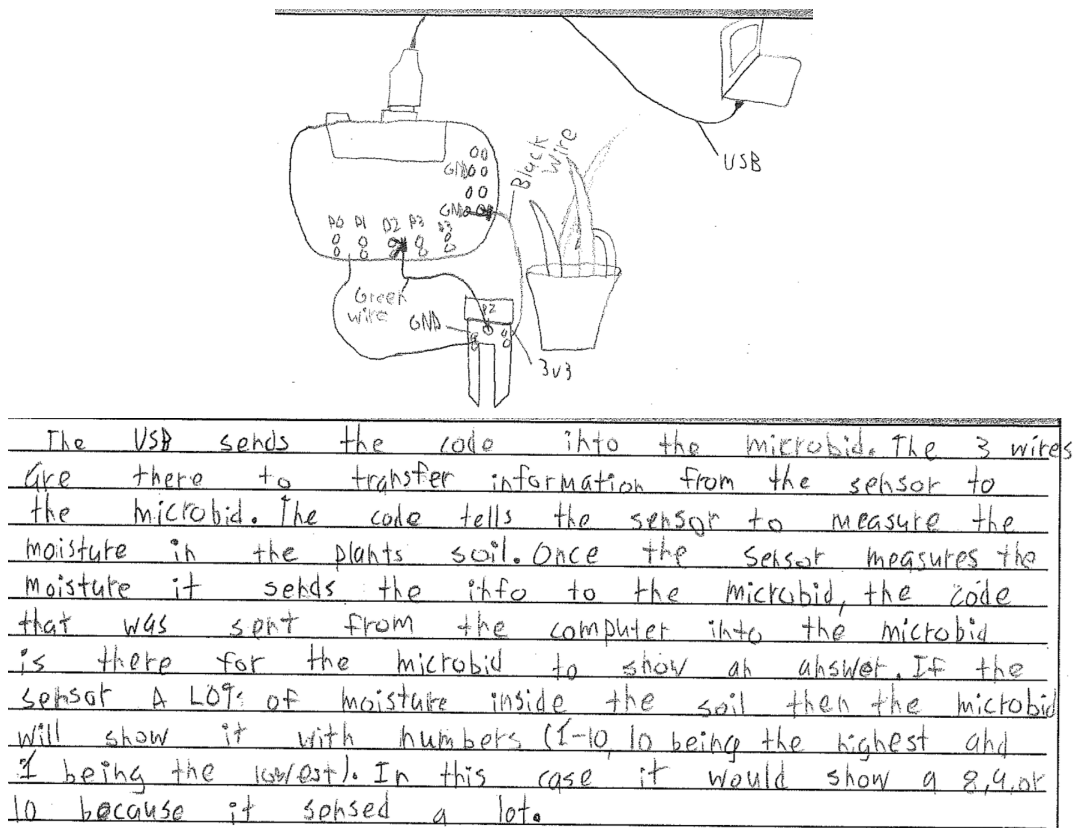 USB
Black
Wire
GND
GND
P0 P1 P2 P3
Green
wire
GND
P2
3v3
The USB sends the code into the microbid. The 3 wires
are there to transfer information from the sensor to
the microbid. The code tells the sensor to measure the
moisture in the plants soil. Once the sensor measures the
moisture it sends the info to the microbid, the code
that was sent from the computer into the microbid
is there for the microbid to show an answer. If the
sensor A LOT of moisture inside the soil then the microbid
will show it with numbers (1-10, 10 being the highest and
1 being the lowest). In this case it would show a 8,9,or
10 because it sensed a lot.